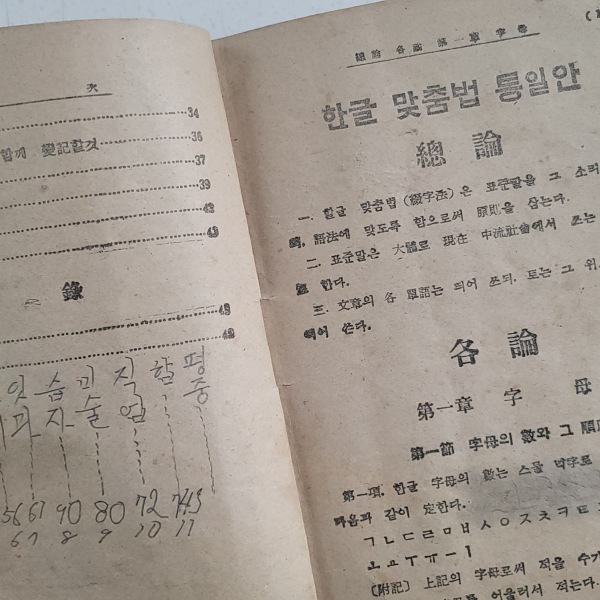 次
34
함께 變記할것 36
37
39
42
43
錄
49
직 함 평
중
56 67 90 80 72 743
6 7 8 9 10 11
總論 各論 第一章 字母
한글 맞춤법 통일안
總論
一. 한글 맞춤법(綴字法)은 표준말을 그 소리
語法에 맞도록 함으로써 原則을 삼는다.
二. 표준말은 大體로 現在 中流社會에서 쓰는
한다.
三. 文章의 各 單語는 띄어 쓰되, 토는 그 위
띄어 쓴다.
各論
第一章 字母
第一節 字母의 數와 그 順
第一項. 한글 字母의 數는 스물 넉字로
다음과 같이 定한다.
ㄱㄴㄷㄹㅁㅂㅅㅇㅈㅊㅋㅌ
ㅗㅛㅜㅠㅡㅣ
〔附記〕 上記의 字母로써 적을 수가
어울러서 적는다.